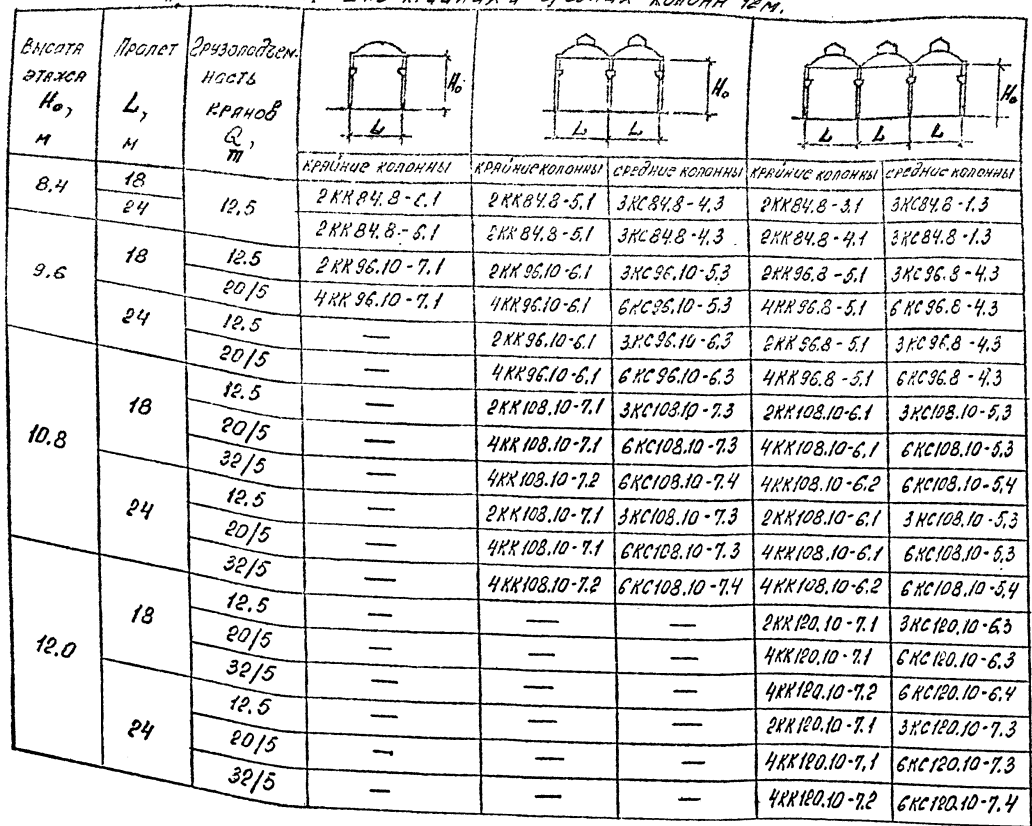 крайних и средних колонн 12м.
Высота этажа Но, м | Пролет L, м | Грузоподъемность кранов Q, т
Но Но Но
L L L L L L
крайние колонны | крайние колонны | средние колонны | крайние колонны | средние колонны
8.4 | 18 | 12.5 | 2КК84.8-5.1 | 3КС84.8-4.3 | 2КК84.8-3.1 | 3КС84.8-1.3
24 | 2КК84.8-6.1 | 2КК84.8-5.1 | 3КС84.8-4.3 | 2КК84.8-4.1 | 3КС84.8-1.3
9.6 | 18 | 12.5 | 2КК96.10-7.1 | 2КК96.10-6.1 | 3КС96.10-5.3 | 2КК96.8-5.1 | 3КС96.8-4.3
20/5 | 4КК96.10-7.1 | 4КК96.10-6.1 | 6КС96.10-5.3 | 4КК96.8-5.1 | 6КС96.8-4.3
24 | 12.5 | — | 2КК96.10-6.1 | 3КС96.10-6.3 | 2КК96.8-5.1 | 3КС96.8-4.3
20/5 | — | 4КК96.10-6.1 | 6КС96.10-6.3 | 4КК96.8-5.1 | 6КС96.8-4.3
10.8 | 18 | 12.5 | — | 2КК108.10-7.1 | 3КС108.10-7.3 | 2КК108.10-6.1 | 3КС108.10-5.3
20/5 | — | 4КК108.10-7.1 | 6КС108.10-7.3 | 4КК108.10-6.1 | 6КС108.10-5.3
32/5 | — | 4КК108.10-7.2 | 6КС108.10-7.4 | 4КК108.10-6.2 | 6КС108.10-5.4
24 | 12.5 | — | 2КК108.10-7.1 | 3КС108.10-7.3 | 2КК108.10-6.1 | 3КС108.10-5.3
20/5 | — | 4КК108.10-7.1 | 6КС108.10-7.3 | 4КК108.10-6.1 | 6КС108.10-5.3
32/5 | — | 4КК108.10-7.2 | 6КС108.10-7.4 | 4КК108.10-6.2 | 6КС108.10-5.4
12.0 | 18 | 12.5 | — | — | — | 2КК120.10-7.1 | 3КС120.10-6.3
20/5 | — | — | — | 4КК120.10-7.1 | 6КС120.10-6.3
32/5 | — | — | — | 4КК120.10-7.2 | 6КС120.10-6.4
24 | 12.5 | — | — | — | 2КК120.10-7.1 | 3КС120.10-7.3
20/5 | — | — | — | 4КК120.10-7.1 | 6КС120.10-7.3
32/5 | — | — | — | 4КК120.10-7.2 | 6КС120.10-7.4